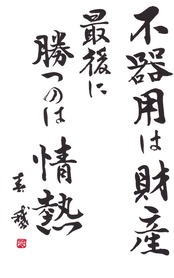 不器用は財産
最後に
勝つのは情熱